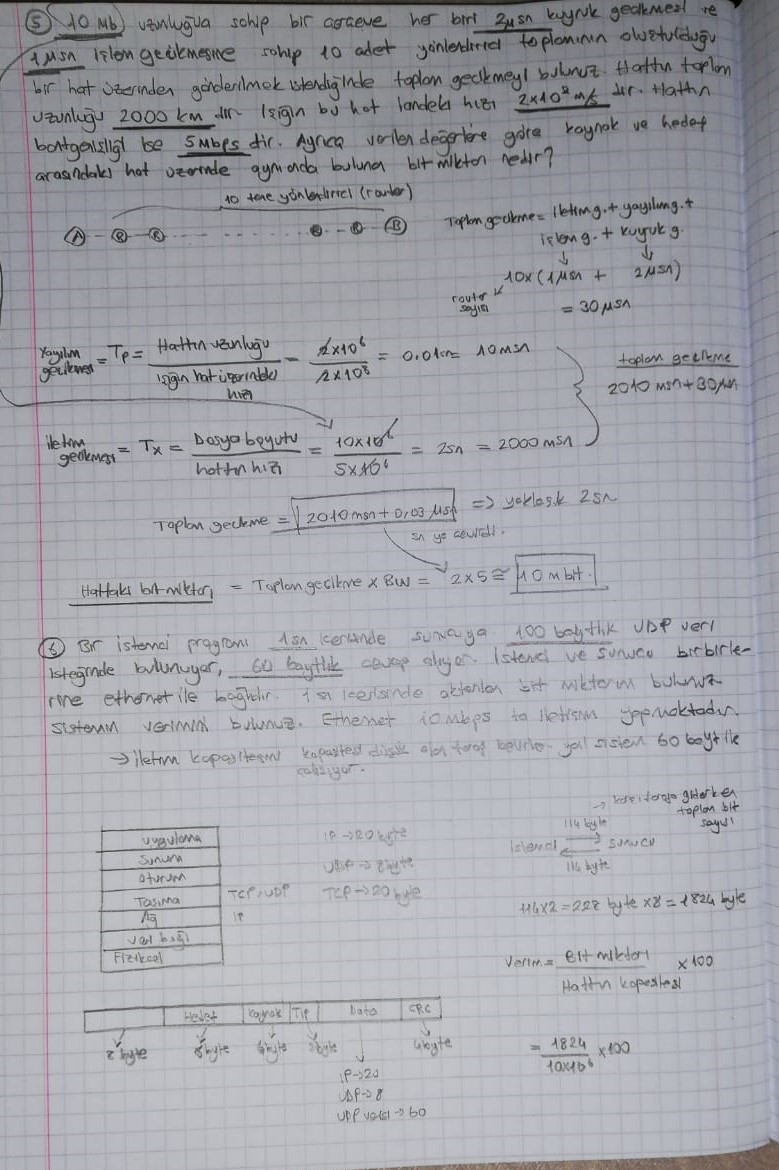 5 10 Mb uzunluğua sahip bir dosyanın her biri 2µsn kuyruk gecikmesi ve
1µsn işlem gecikmesine sahip 10 adet yönlendirici toplamının oluşturduğu
bir hat üzerinden gönderilmek istendiğinde toplam gecikmeyi bulunuz. Hattın toplam
uzunluğu 2000 km dir. Işığın bu hat üzerindeki hızı 2x10⁸ m/s dir. Hattın
bantgenişliği ise 5Mbps dir. Ayrıca verilen değerlere göre kaynak ve hedef
arasındaki hat üzerinde aynı anda bulunan bit miktarı nedir?
10 tane yönlendirici (router)
A R R R R B
Toplam gecikme = iletim g. + yayılım g. +
işlem g. + kuyruk g.
10x(1µsn + 2µsn)
router sayısı
= 30µsn
Yayılım gecikmesi = Tp = Hattın uzunluğu / ışığın hat üzerindeki hızı = 2x10⁶ / 2x10⁸ = 0.01sn = 10msn
toplam gecikme
2010 msn + 30µsn
iletim gecikmesi = Tx = Dosya boyutu / hattın hızı = 10x10⁶ / 5x10⁶ = 2sn = 2000msn
Toplam gecikme = 2010msn + 0,03 µsn => yaklaşık 2sn
sn ye çevirdi.
Hattaki bit miktarı = Toplam gecikme x BW = 2x5 ≅ 10 mbit.
6 Bir istemci programı 1sn içerisinde sunucuya 100 baytlık UDP veri
isteğinde bulunuyor, 60 baytlık cevap alıyor. İstemci ve sunucu birbirle-
rine ethernet ile bağlıdır. 1 sn içerisinde aktarılan bit miktarını bulunuz
sistemin verimini bulunuz. Ethernet 10mbps ta iletişim yapmaktadır.
→ iletim kapasitesini kapasitesi düşük olan taraf belirler. yani sistem 60 bayt ile
çalışıyor.
karşı tarafa giderken
toplam bit
sayısı
114 byte
istemci sunucu
114 byte
uygulama
Sunum
oturum
Taşıma TCP, UDP
Ağ IP
veri bağı
Fiziksel
IP → 20 byte
UDP → 8 byte
TCP → 20 byte
114x2 = 228 byte x8 = 1824 byte
Verim = Bit miktarı / Hattın kapasitesi x 100
Hedef Kaynak Tip Data CRC
8 byte 6byte 6byte 2byte 4byte
IP → 20
UDP → 8
UDP verisi → 60
= 1824 / 10x10⁶ x100